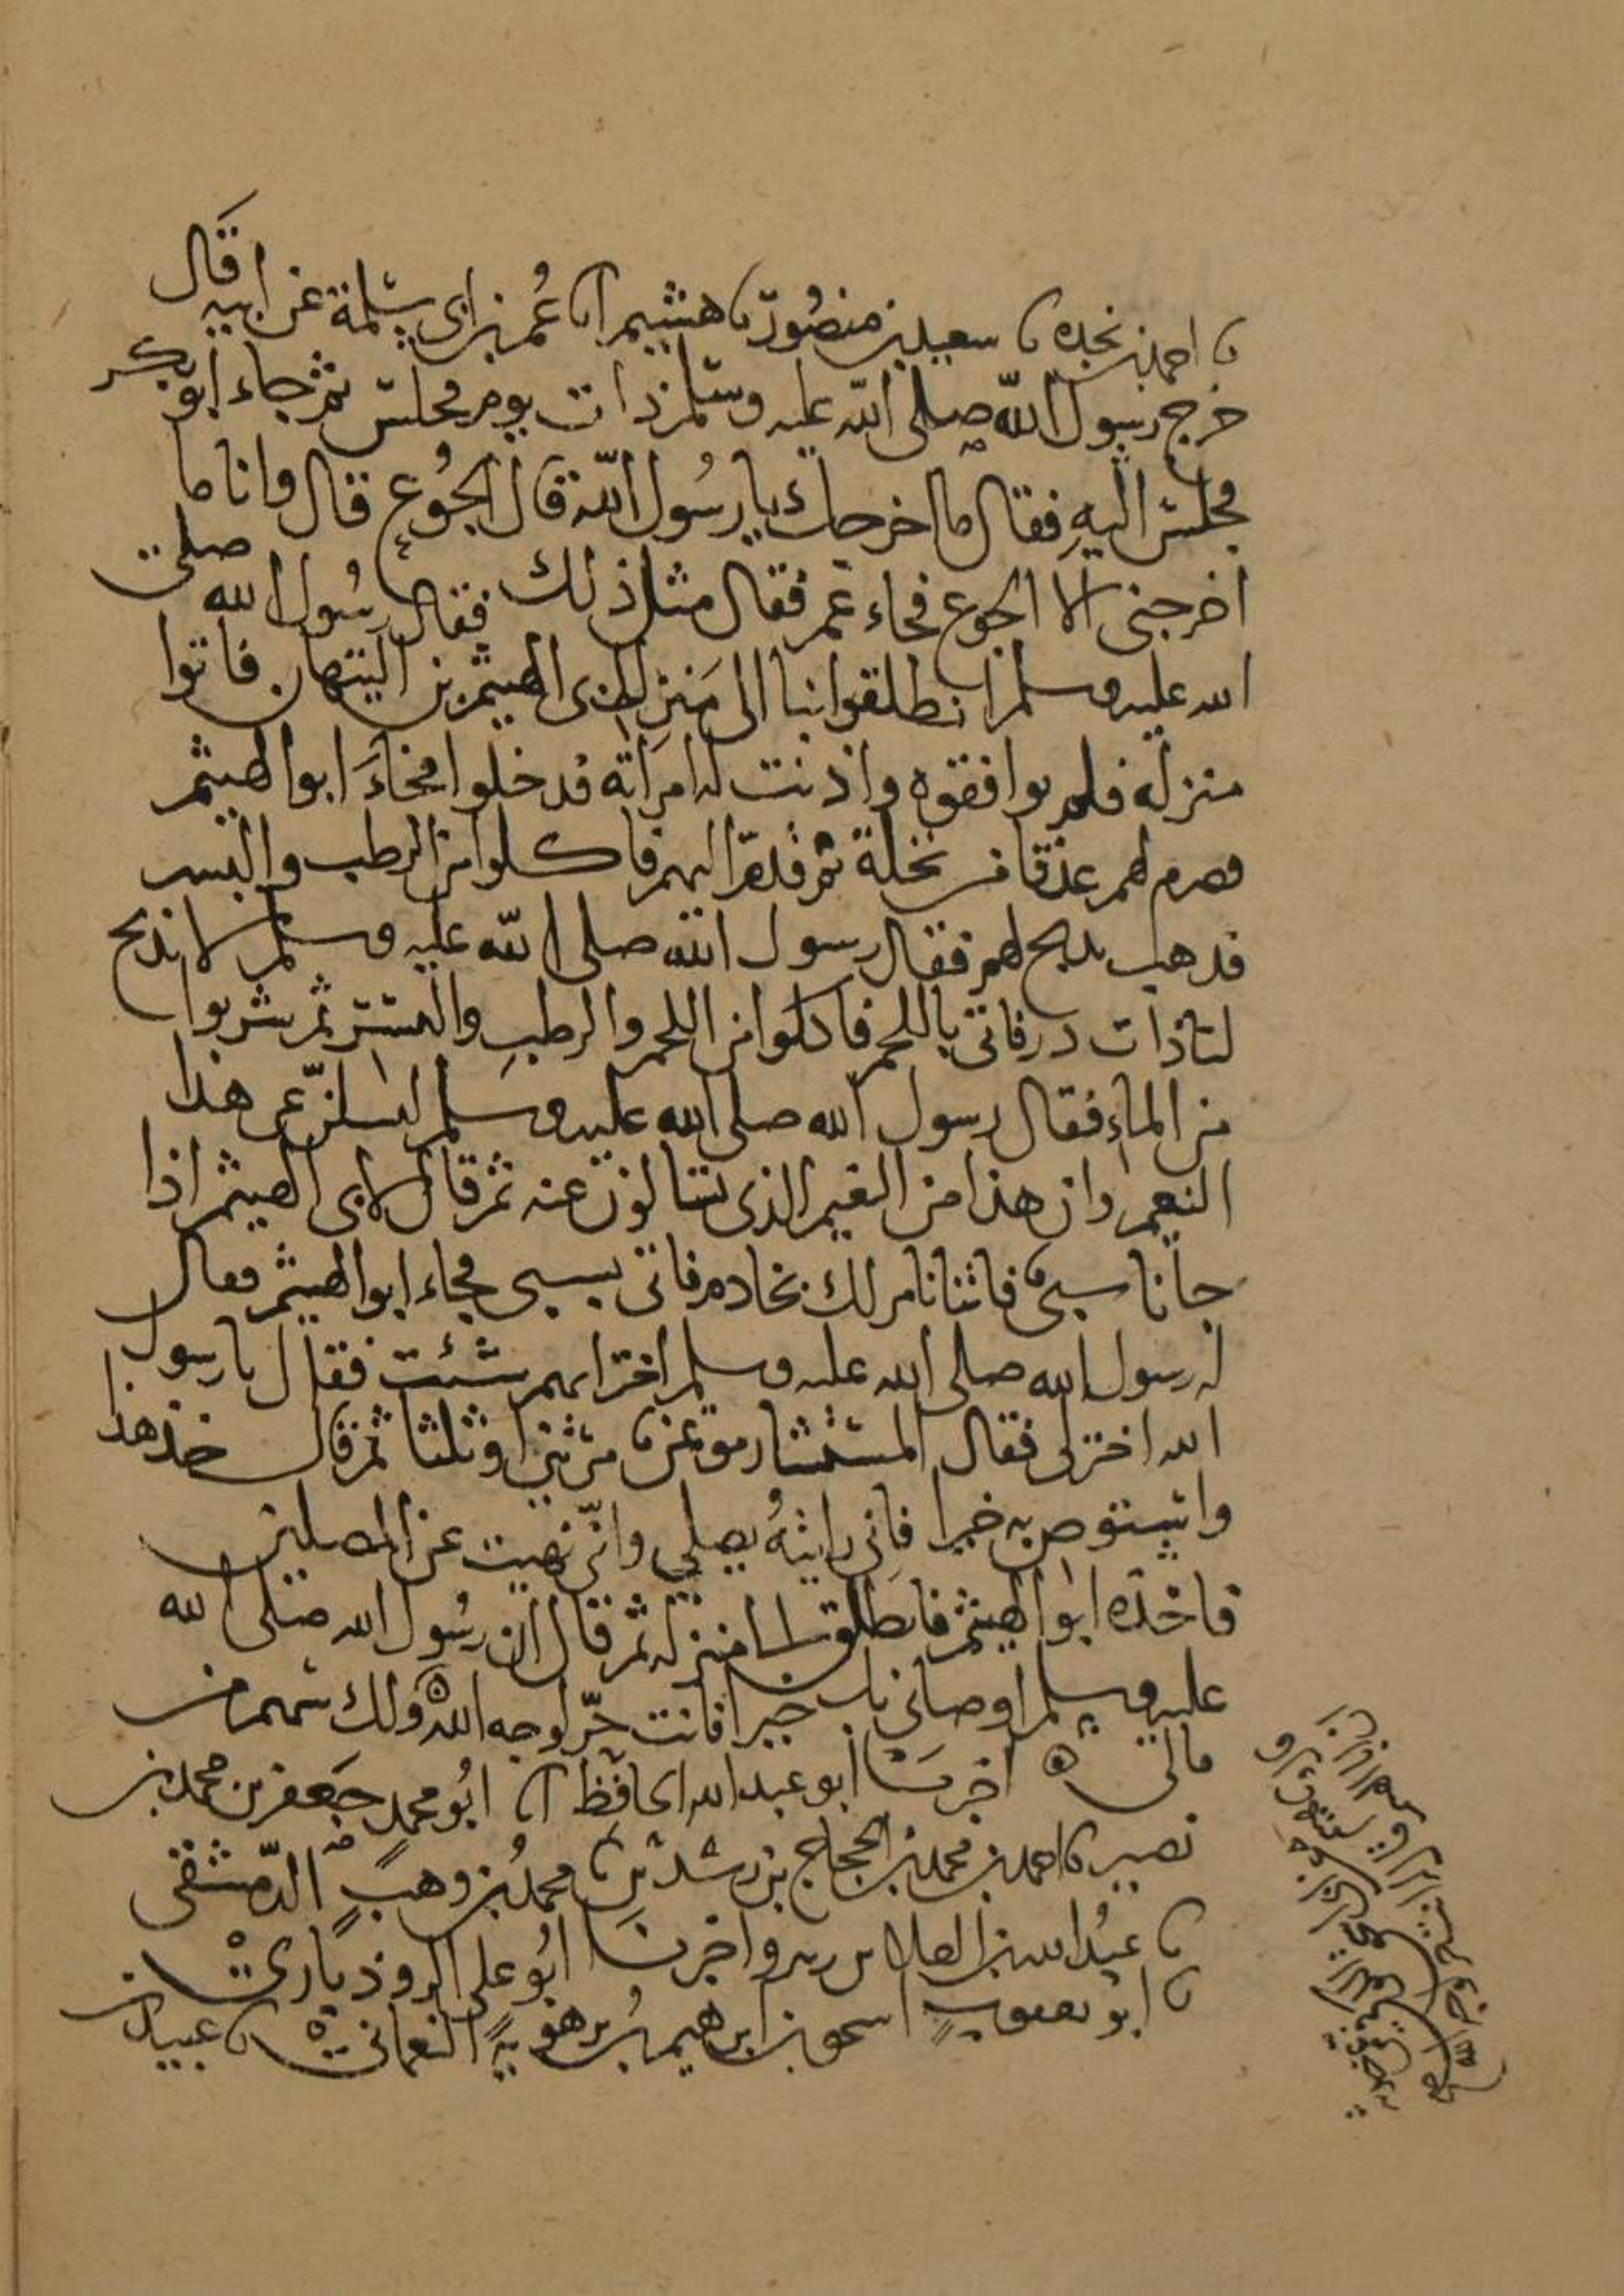 نا احمد بن نجده نا سعيد بن منصور نا هشيم انا عُمر بن ابى سلمة عن ابيه قال
خرج رسول الله صلى الله عليه وسلم ذات يوم فجلس ثم جاء ابو بكر
فجلس اليه فقال ما اخرجك يا رسُول الله قال الجُوع قال وانا ما
اخرجنى الا الجوع فجاء عمر فقال مثل ذلك فقال رسُول الله صلى
الله عليه وسلم انطلقوا بنا الى منزل ابى الهيثم بن التيهان فاتوا
منزله فلم يوافقوه واذنت له امراته فدخلوا فجاءَ ابوا الهيثم
فصرم لهم عذقا من نخلة ثم قدمه اليهم فاكلوا من الرطب والبسر
فذهب يذبح لهم فقال رسول الله صلى الله عليه وسلم لا تذبح
لنا ذات در فاتى باللحم فاكلوا من اللحم والرطب والبسر ثم شربوا
من الماء فقال رسول الله صلى الله عليه وسلم لتسلن عن هذا
النعيم وان هذا من النعيم الذى تسالون عنه ثم قال لابى الهيثم اذا
جانا سبى فاتنا نامر لك بخادم فاتى بسبى فجاء ابوا الهيثم فقال
له رسول الله صلى الله عليه وسلم اختر ايهم شئت فقال يا رسول
الله اختر لى فقال المستشار موتمن مرتين او ثلثا ثم قال خذ هذا
واستوص به خيرا فانى رايتهُ يصلى وانى نهيت عن المصلين
فاخذه ابوا الهيثم فانطلق به الى منزله ثم قال ان رسُول الله صلى الله
عليه وسلم اوصانى بك خيرا فانت حرّ لوجه الله ولك سهم من
مالى ه اخبرنا ابو عبد الله الحافظ انا ابُو محمد جعفر بن محمد بن
نصير نا احمد بن محمد بن الحجاج بن رشدين نا محمد بن وهب الدمشقى
نا عبد الله بن العلا بن زبر واخبرنا ابُو على الروذبارى
نا ابو يعقوب اسحق بن ابرهيم بن برهويه النعمانى نا عبيد بن